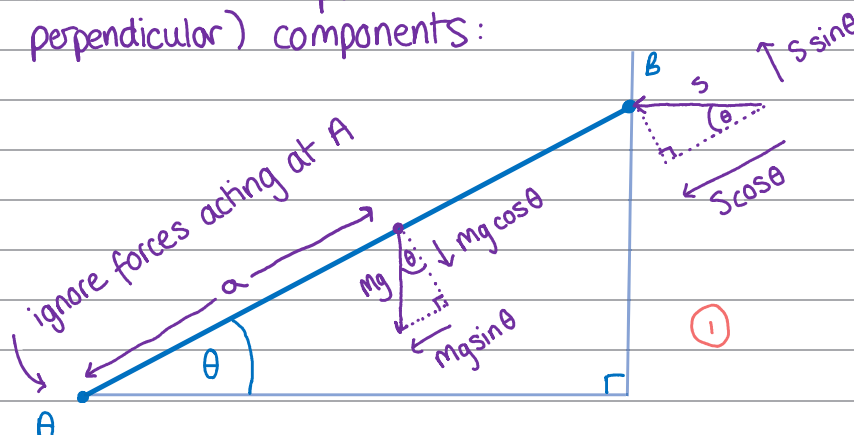 perpendicular) components:
B
S
S sinθ
θ
S cosθ
ignore forces acting at A
a
θ
mg cosθ
mg
mg sinθ
1
θ
A